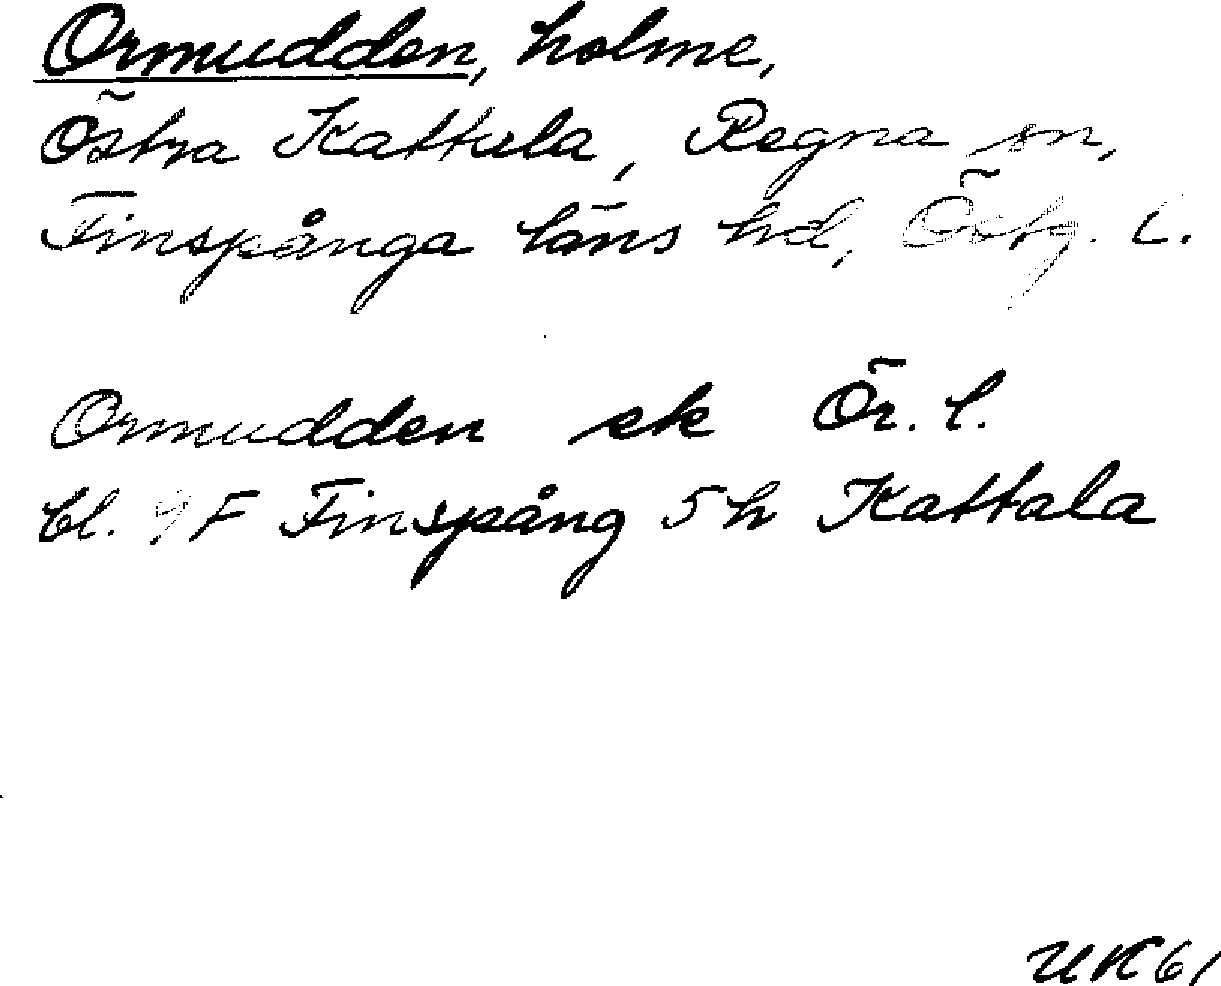 Ormudden, holme,
Östra Kattala, Regna sn,
Finspånga läns hd, Östg. l.
Ormudden ek Ör. l.
bl. 9F Finspång 5h Kattala
UK 61